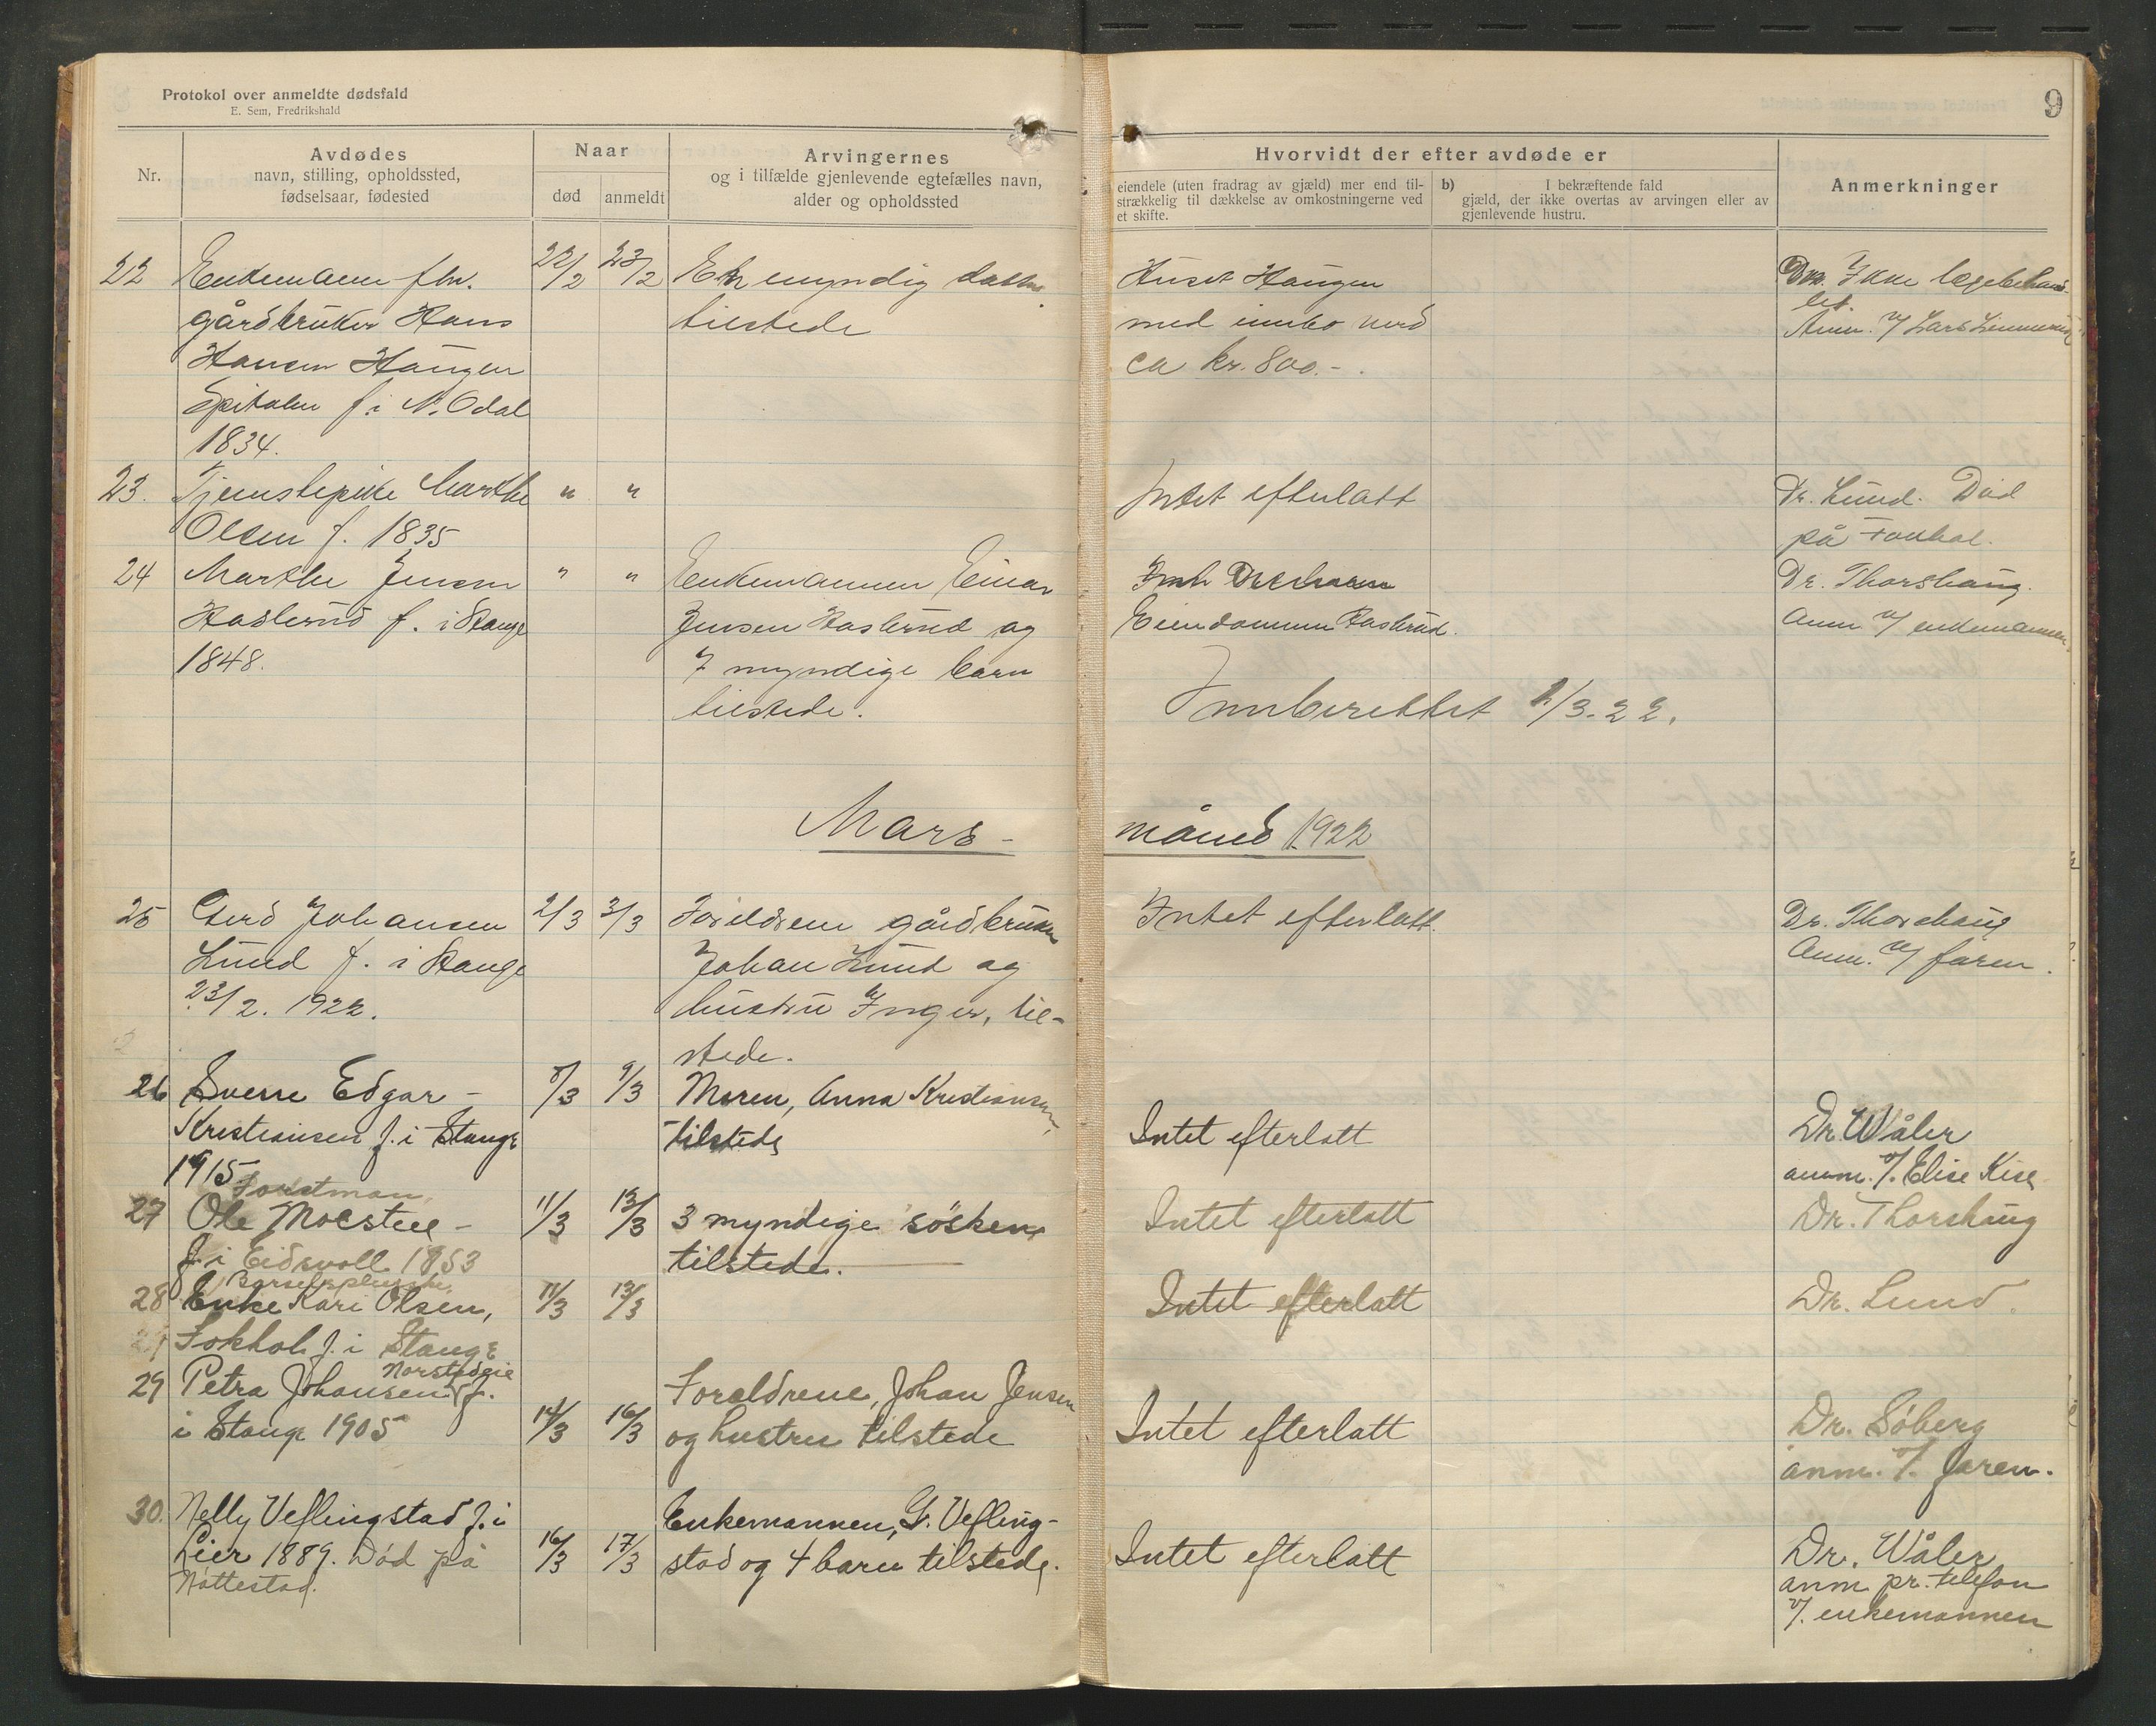 Protokol over anmeldte dødsfald
E. Sem, Fredrikshald
9
Nr.
Avdødes
navn, stilling, opholdssted,
fødselsaar, fødested
Naar
død
anmeldt
Arvingernes
og i tilfælde gjenlevende egtefælles navn,
alder og opholdssted
Hvorvidt der efter avdøde er
eiendele (uten fradrag av gjæld) mer end til-
strækkelig til dækkelse av omkostningerne ved
et skifte.
b) I bekræftende fald
gjæld, der ikke overtas av arvingen eller av
gjenlevende hustru.
Anmerkninger
22
Enkemann fhv.
gårdbruker Hans
Hansen Haugen
Spitalen f. i N. Odal
1834.
22/2
23/2
En myndig datter
tilstede
Huset Haugen
med innbo verd
ca kr. 800.-
Ikke lægebehand-
let.
Anm. v/ Lars
23.
Tjenstepike Marthe
Olsen f. 1835
"
"
Intet efterlatt
Dr. Lund. Død
på Fokhol.
24
Marthe Jensen
Haslerud f. i Stange
1848.
"
"
Enkemannen Einar
Jensen Haslerud og
7 myndige barn
tilstede.
Eiendommen Haslerud.
Dr. Thorshaug.
Anm v/ enkemannen.
Innberettet 1/3-22.
Mars -
måned 1922
25
Gerd Johansen
Lund f. i Stange
23/2. 1922.
2/3
3/3
Foreldrene gårdbruker
Johan Lund og
hustru Inger, til-
stede.
Intet efterlatt.
Dr. Thorshaug
Anm. v/ faren.
26
Sverre Edgar -
Kristiansen f. i Stange
1915
8/3
9/3
Moren, Anna Kristiansen,
tilstede
Intet efterlatt
Dr. Wåler
anm. v/. Elise Kise
27
Forstman
Ole Moestue -
f. i Eidsvoll 1853
11/3
13/3
3 myndige søsken
tilstede.
Intet efterlatt
Dr. Thorshaug
28
Enke Kari Olsen,
Fokhol f. i Stange
11/3
13/3
Intet efterlatt
Dr. Lund.
29
Petra Johansen f.
i Stange 1905
14/3
16/3
Foreldrene, Johan Jensen
og hustru tilstede
Intet efterlatt
Dr. Søberg
anm. v/. faren.
30.
Nelly Veflingstad f. i
Lier 1889. Død på
Nøttestad.
16/3
17/3
Enkemannen, G. Vefling-
stad og 4 barn tilstede.
Intet efterlatt
Dr. Wåler
anm. pr. telefon
v/. enkemannen